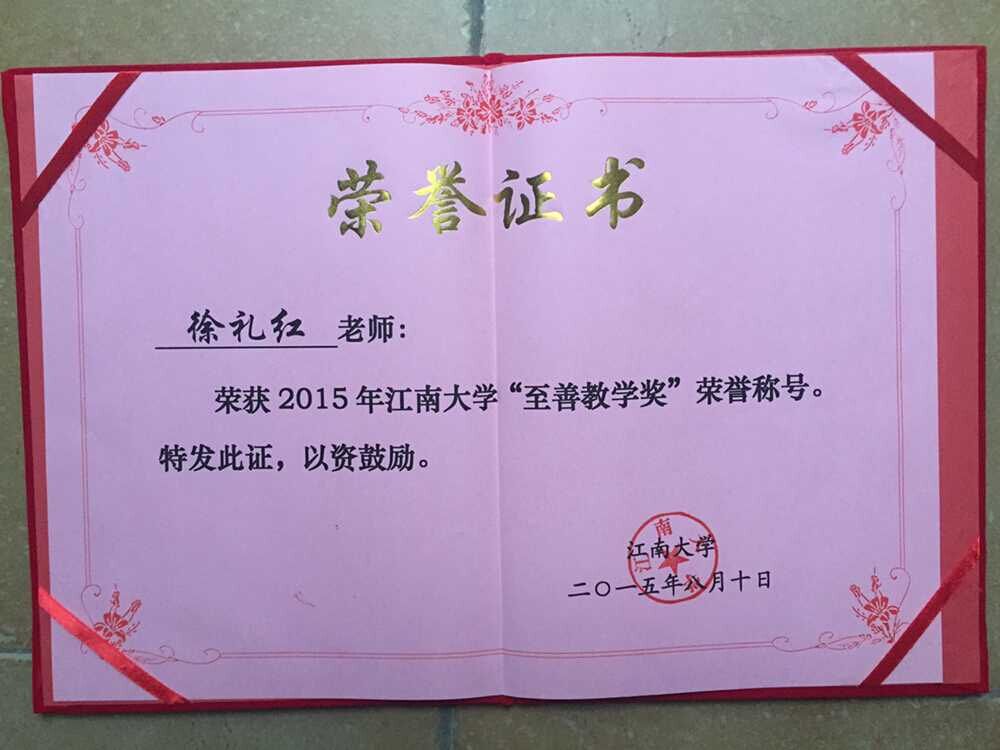 荣誉证书
徐礼红 老师：
荣获 2015 年江南大学“至善教学奖”荣誉称号。
特发此证，以资鼓励。
江南大学
二〇一五年八月十日